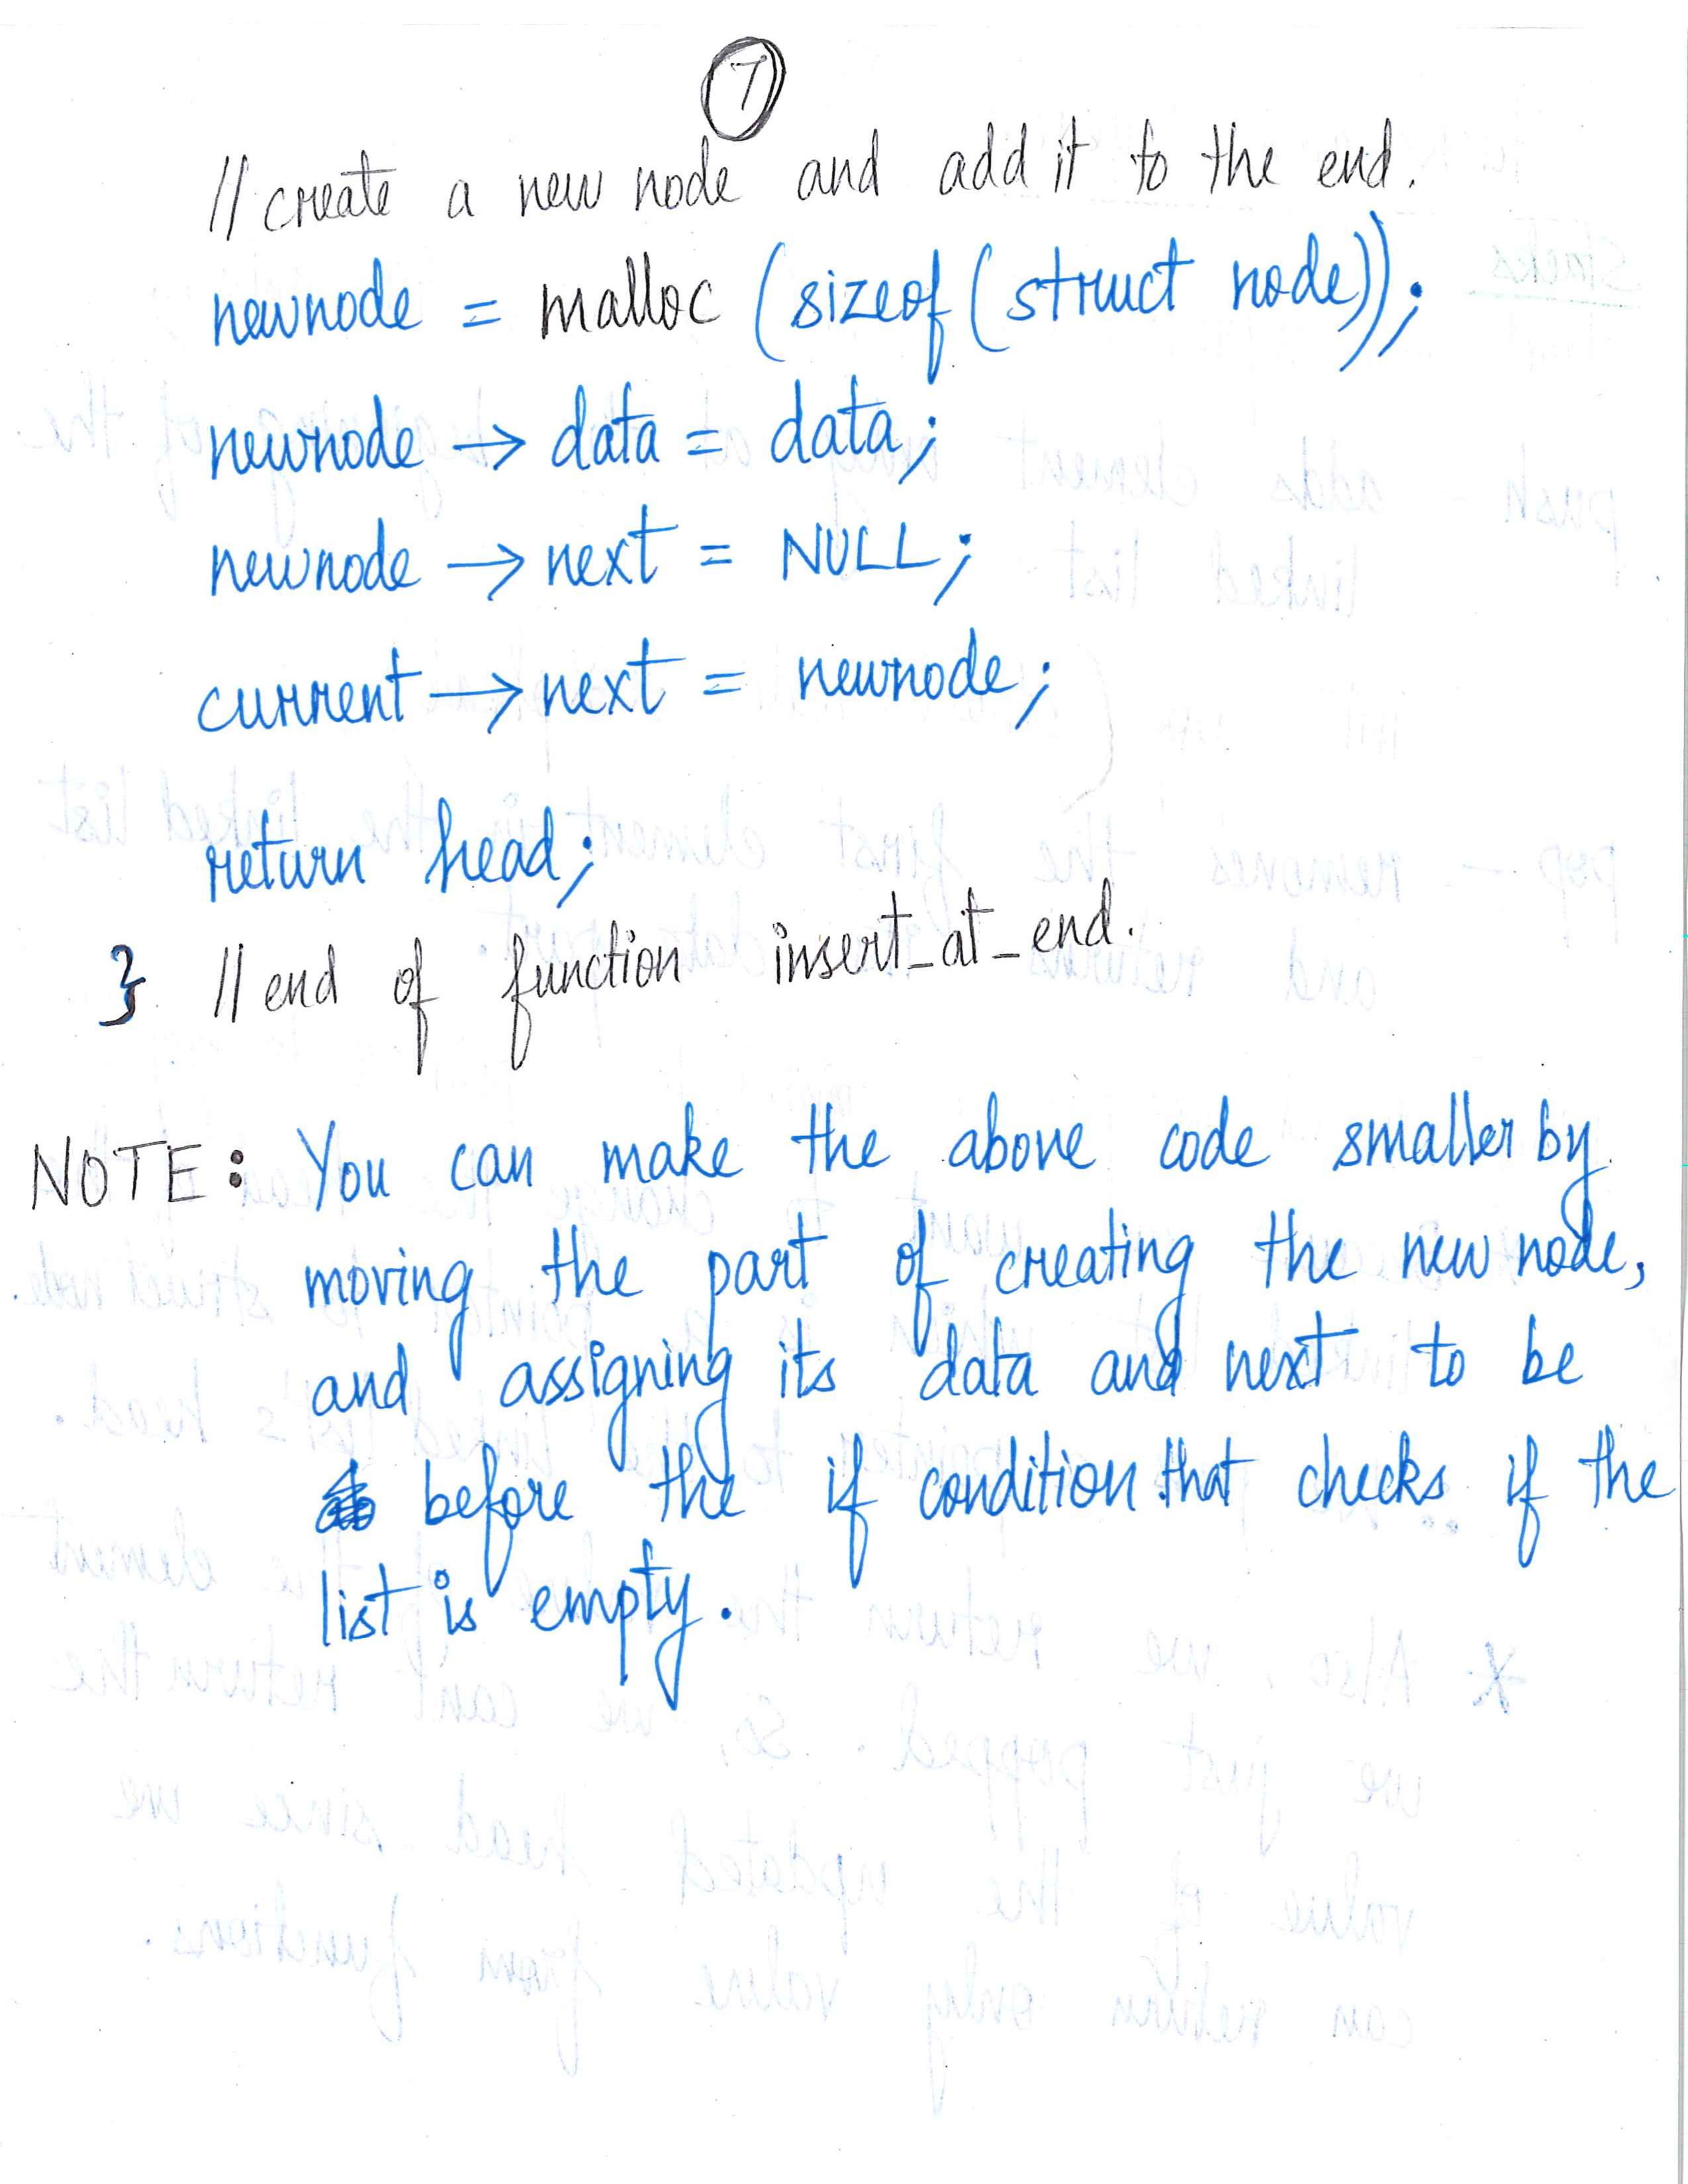 7
// create a new node and add it to the end.
newnode = malloc (sizeof (struct node));
newnode → data = data;
newnode → next = NULL;
current → next = newnode;
return head;
} // end of function insert_at_end.
NOTE: You can make the above code smaller by
moving the part of creating the new node,
and assigning its data and next to be
before the if condition that checks if the
list is empty.